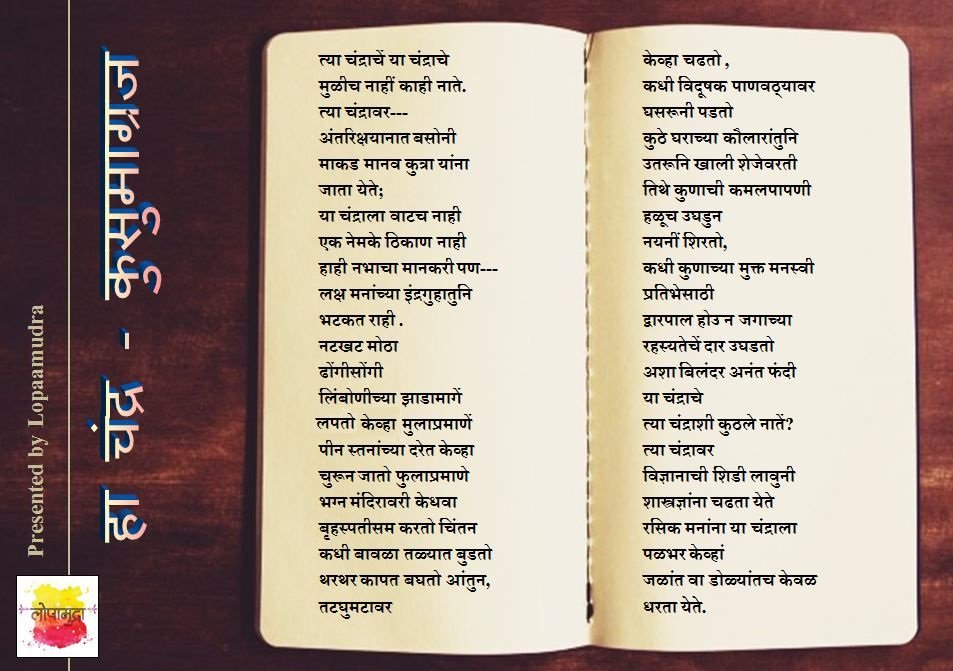 हा चंद्र - कुसुमाग्रज
Presented by Lopaamudra
लोपामुद्रा
त्या चंद्राचें या चंद्राचे
मुळीच नाहीं काही नाते.
त्या चंद्रावर---
अंतरिक्षयानात बसोनी
माकड मानव कुत्रा यांना
जाता येते;
या चंद्राला वाटच नाही
एक नेमके ठिकाण नाही
हाही नभाचा मानकरी पण---
लक्ष मनांच्या इंद्रगुहातुनि
भटकत राही .
नटखट मोठा
ढोंगीसोंगी
लिंबोणीच्या झाडामागें
लपतो केव्हा मुलाप्रमाणें
पीन स्तनांच्या दरेत केव्हा
चुरून जातो फुलाप्रमाणे
भग्न मंदिरावरी केधवा
बृहस्पतीसम करतो चिंतन
कधी बावळा तळ्यात बुडतो
थरथर कापत बघतो आंतुन,
तटघुमटावर
केव्हा चढतो ,
कधी विदूषक पाणवठ्यावर
घसरूनी पडतो
कुठे घराच्या कौलारांतुनि
उतरूनि खाली शेजेवरती
तिथे कुणाची कमलपापणी
हळूच उघडुन
नयनीं शिरतो,
कधी कुणाच्या मुक्त मनस्वी
प्रतिभेसाठी
द्वारपाल होउन जगाच्या
रहस्यतेचें दार उघडतो
अशा बिलंदर अनंत फंदी
या चंद्राचे
त्या चंद्राशी कुठले नातें?
त्या चंद्रावर
विज्ञानाची शिडी लावुनी
शास्त्रज्ञांना चढता येते
रसिक मनांना या चंद्राला
पळभर केव्हां
जळांत वा डोळ्यांतच केवळ
धरता येते.